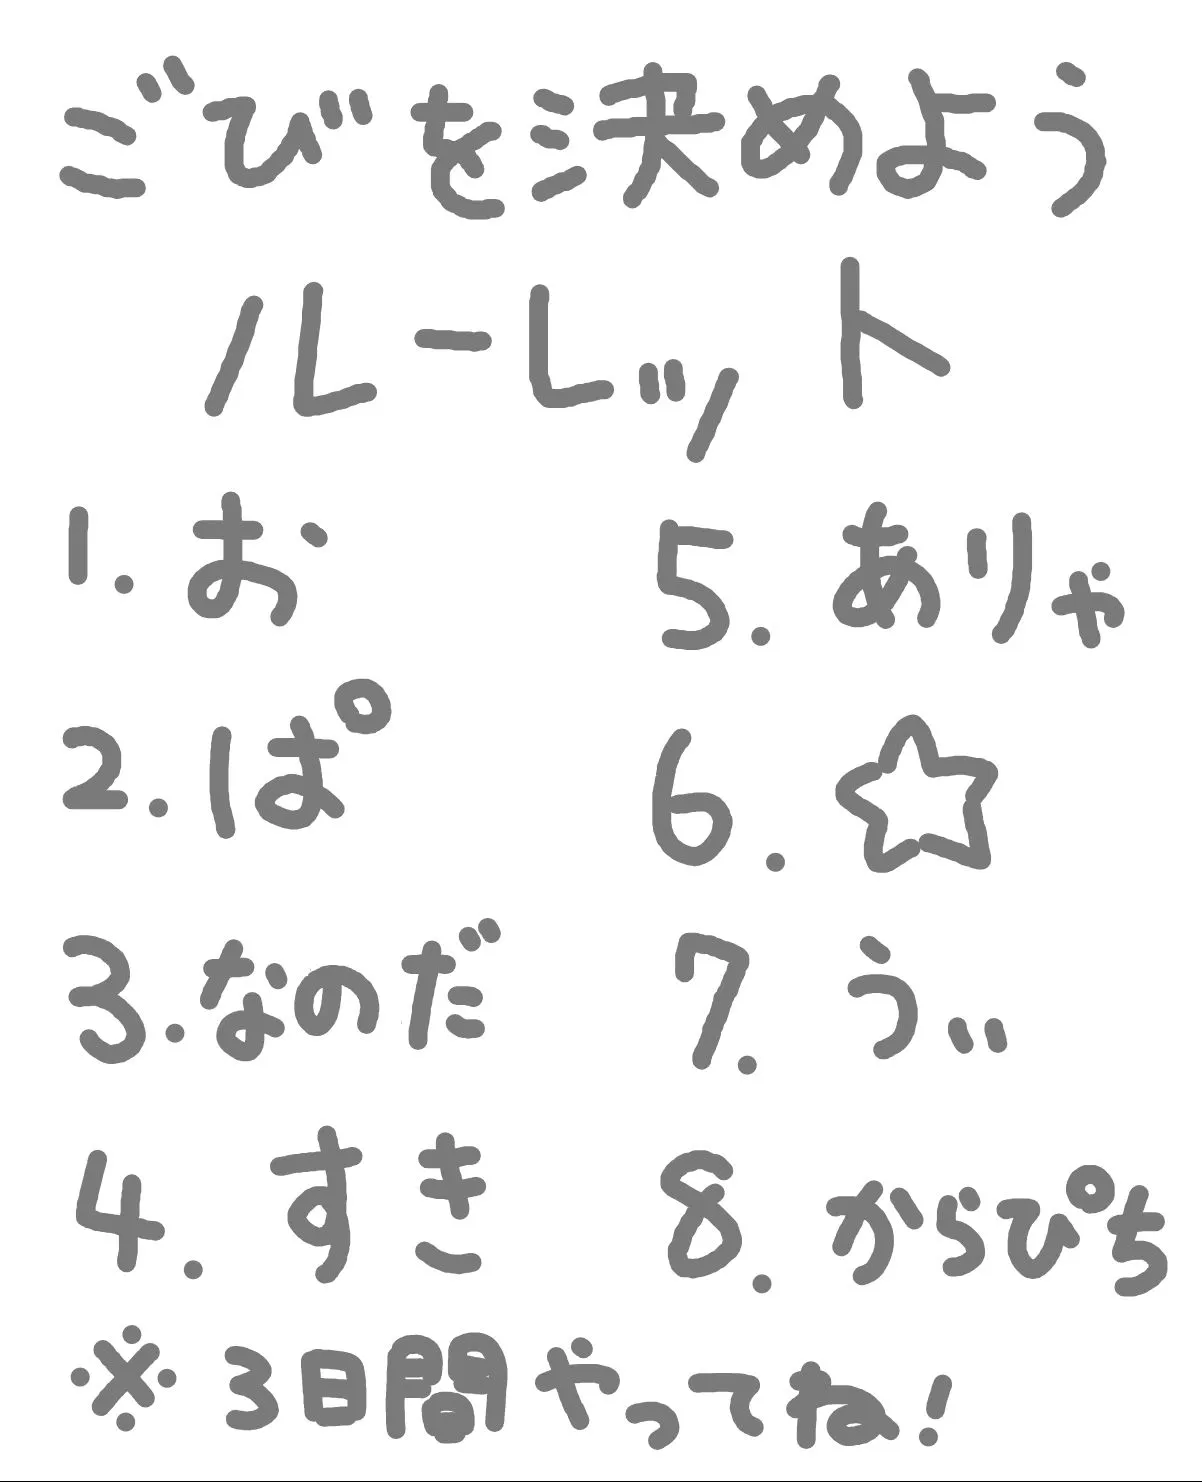 ごびを決めよう
ルーレット
1. お
2. ぱ
3. なのだ
4. すき
5. ありゃ
6. ☆
7. うぃ
8. からぴち
※3日間やってね!